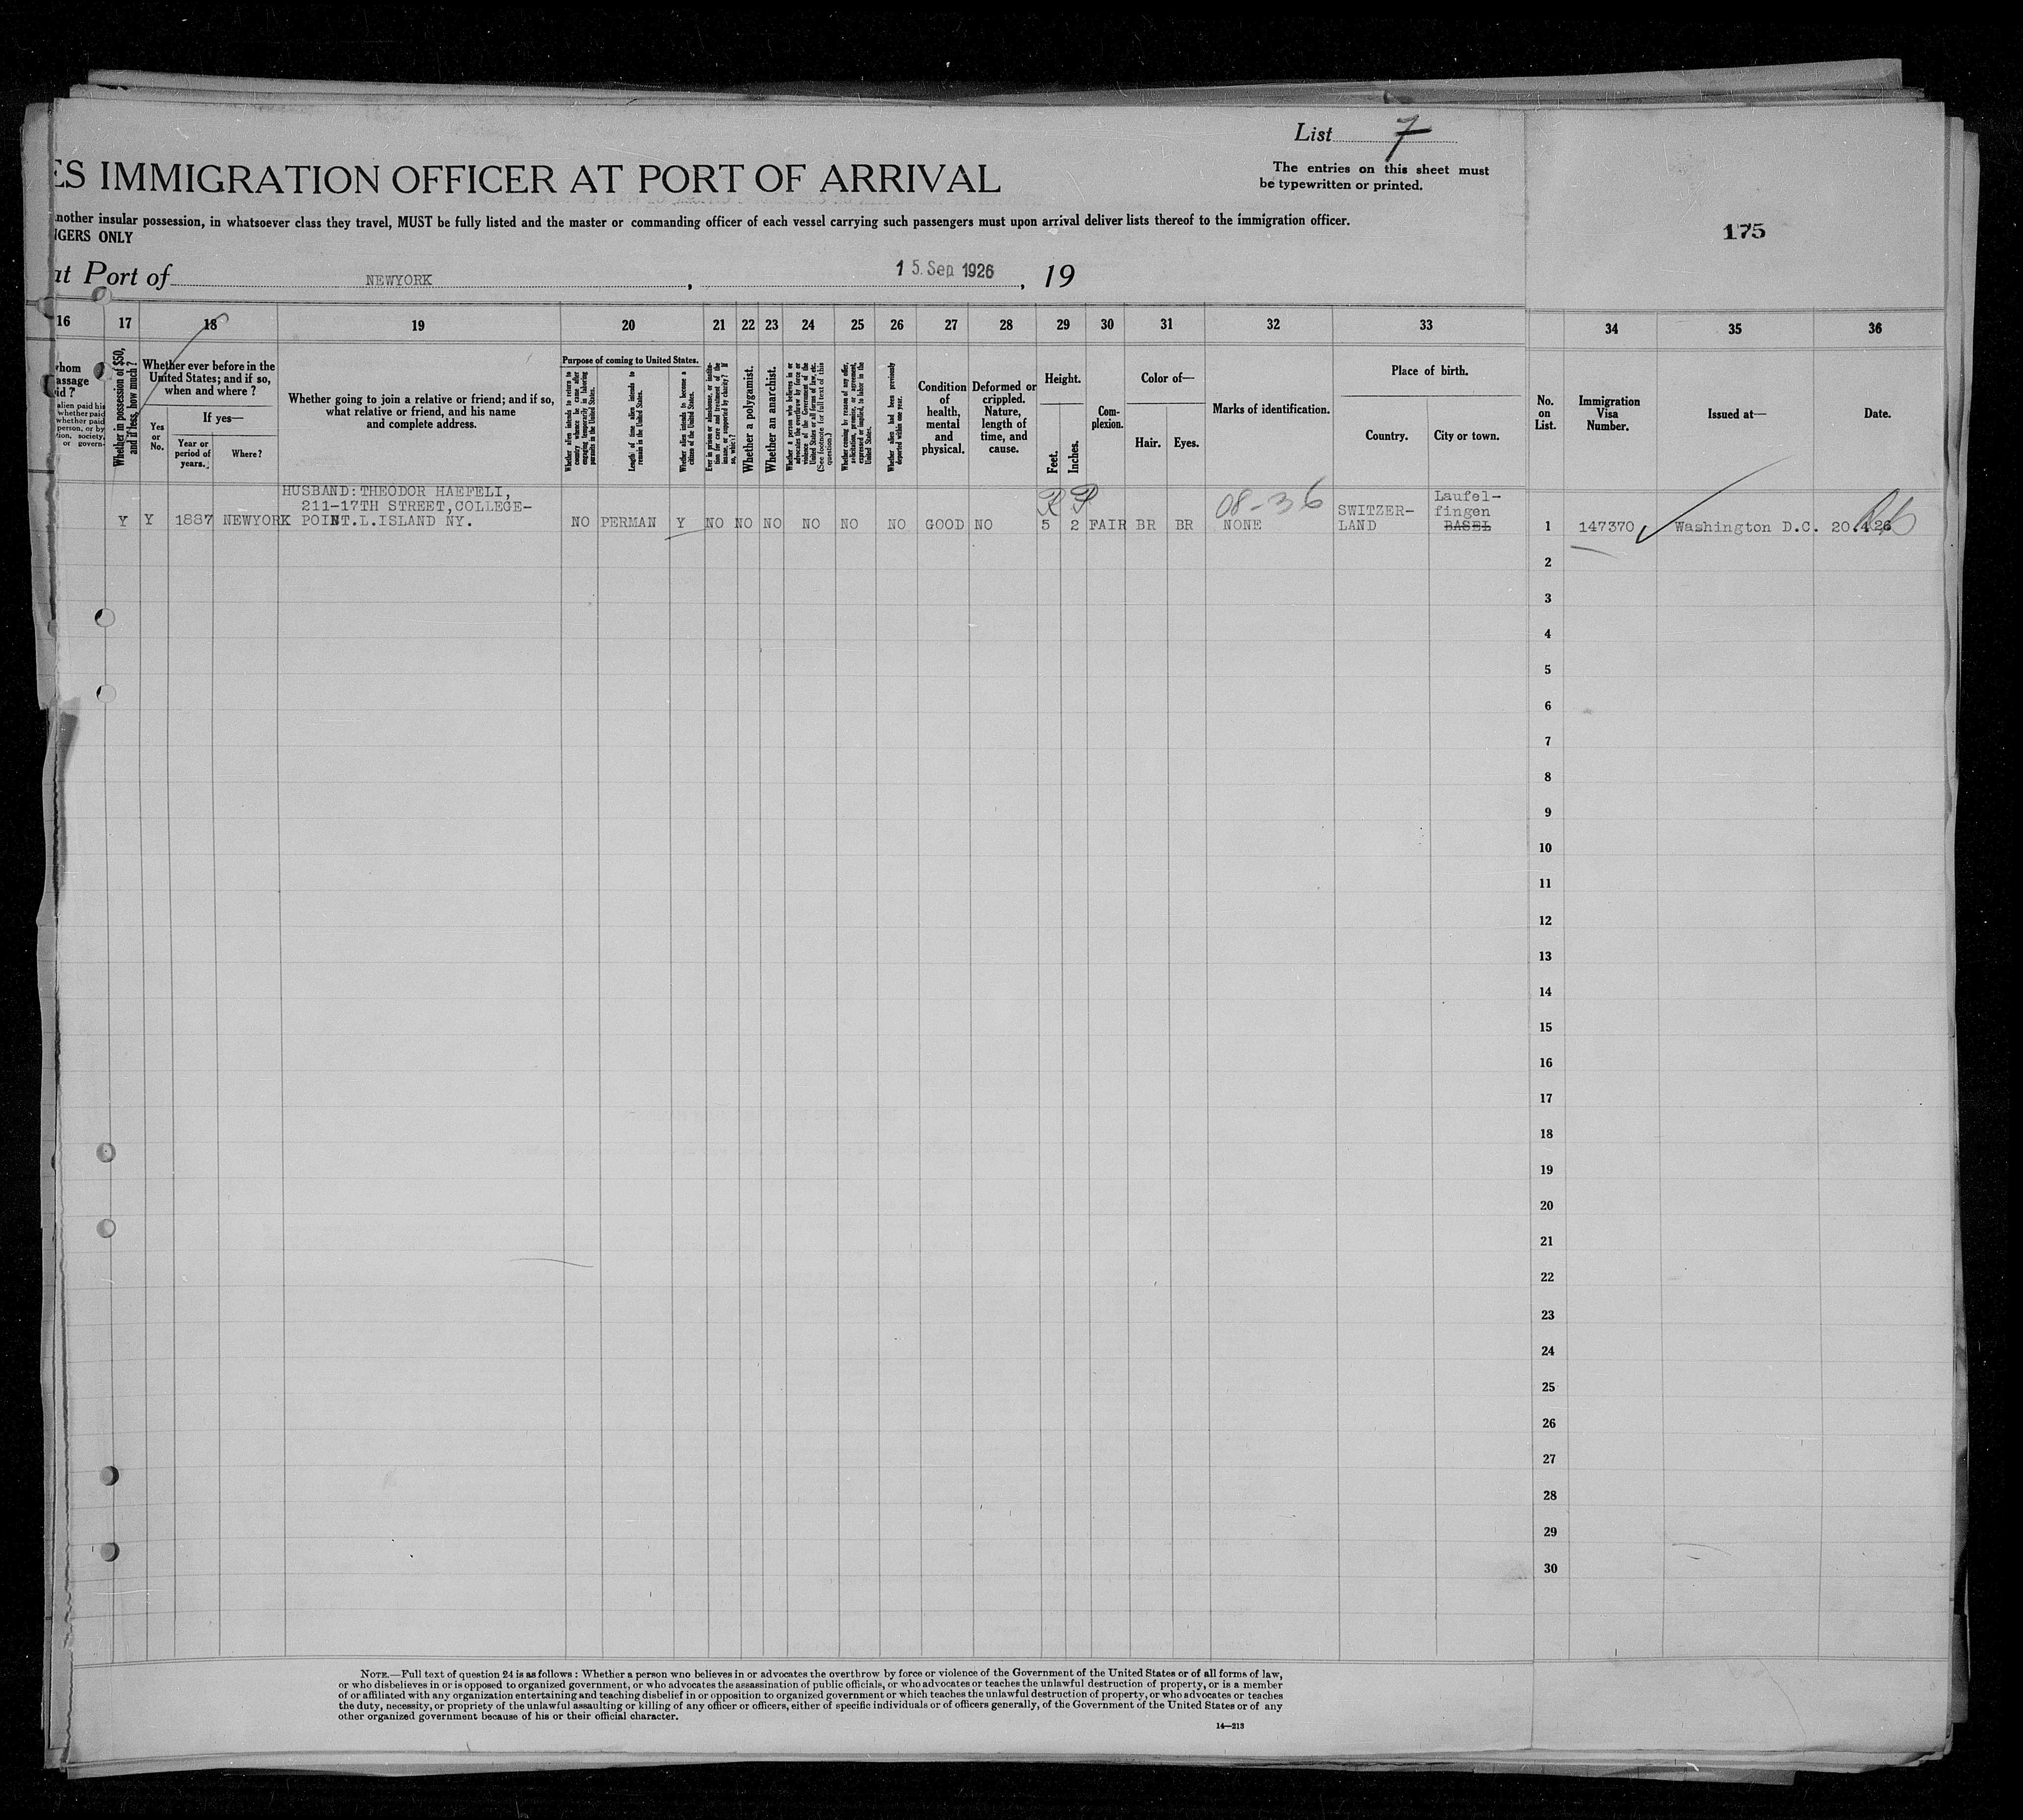 List 7
The entries on this sheet must
be typewritten or printed.
ES IMMIGRATION OFFICER AT PORT OF ARRIVAL
nother insular possession, in whatsoever class they travel, MUST be fully listed and the master or commanding officer of each vessel carrying such passengers must upon arrival deliver lists thereof to the immigration officer.
NGERS ONLY
175
at Port of NEWYORK , 15. Sep 1926 , 19
16 17 18 19 20 21 22 23 24 25 26 27 28 29 30 31 32 33 34 35 36
whom
assage
id ?
alien paid his
whether paid
whether paid
person, or by
tion, society,
or govern-
Whether in possession of $50,
and if less, how much ?
Whether ever before in the
United States; and if so,
when and where ?
Yes
or
No.
If yes—
Year or
period of
years.
Where?
Whether going to join a relative or friend; and if so,
what relative or friend, and his name
and complete address.
Purpose of coming to United States.
Whether alien intends to return to
country whence he came after
engaging temporarily in laboring
pursuits in the United States.
Length of time alien intends to
remain in the United States.
Whether alien intends to become a
citizen of the United States.
Ever in prison or almshouse, or institu-
tion for care and treatment of the
insane, or supported by charity? If
so, which?
Whether a polygamist.
Whether an anarchist.
Whether a person who believes in or
advocates the overthrow by force or
violence of the Government of the
United States or all forms of law, etc.
(See footnote for full text of this
question.)
Whether coming by reason of any offer,
solicitation, promise, or agreement,
expressed or implied, to labor in the
United States.
Whether alien had been previously
deported within one year.
Condition
of
health,
mental
and
physical.
Deformed or
crippled.
Nature,
length of
time, and
cause.
Height.
Feet.
Inches.
Com-
plexion.
Color of—
Hair.
Eyes.
Marks of identification.
Place of birth.
Country.
City or town.
No.
on
List.
Immigration
Visa
Number.
Issued at—
Date.
HUSBAND: THEODOR HAEFELI,
211-17TH STREET, COLLEGE-
Y Y 1887 NEWYORK POINT.L.ISLAND NY. NO PERMAN Y NO NO NO NO NO NO GOOD NO 5 2 FAIR BR BR
08-36
NONE
SWITZER-
LAND
Laufel-
fingen
BASEL
1 147370 Washington D.C. 20.4.26
2
3
4
5
6
7
8
9
10
11
12
13
14
15
16
17
18
19
20
21
22
23
24
25
26
27
28
29
30
NOTE.—Full text of question 24 is as follows : Whether a person who believes in or advocates the overthrow by force or violence of the Government of the United States or of all forms of law,
or who disbelieves in or is opposed to organized government, or who advocates the assassination of public officials, or who advocates or teaches the unlawful destruction of property, or is a member
of or affiliated with any organization entertaining and teaching disbelief in or opposition to organized government or which teaches the unlawful destruction of property, or who advocates or teaches
the duty, necessity, or propriety of the unlawful assaulting or killing of any officer or officers, either of specific individuals or of officers generally, of the Government of the United States or of any
other organized government because of his or their official character.
14—213